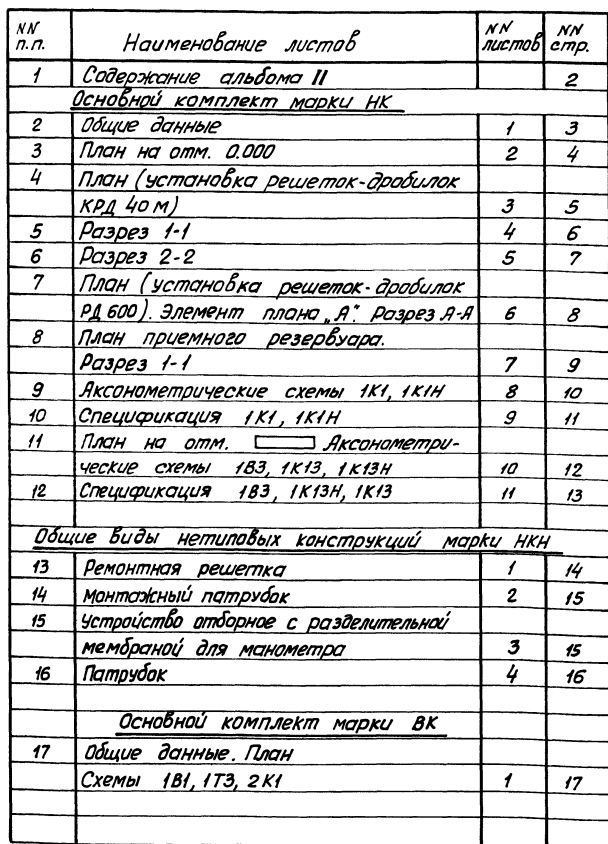 NN п.п. Наименование листов NN листов NN стр.
1 Содержание альбома II 2
Основной комплект марки НК
2 Общие данные 1 3
3 План на отм. 0.000 2 4
4 План (установка решеток-дробилок
КРД 40 м) 3 5
5 Разрез 1-1 4 6
6 Разрез 2-2 5 7
7 План (установка решеток-дробилок
РД 600). Элемент плана „А". Разрез А-А 6 8
8 План приемного резервуара.
Разрез 1-1 7 9
9 Аксонометрические схемы 1К1, 1К1Н 8 10
10 Спецификация 1К1, 1К1Н 9 11
11 План на отм. Аксонометри-
ческие схемы 1В3, 1К13, 1К13Н 10 12
12 Спецификация 1В3, 1К13Н, 1К13 11 13
Общие виды нетиповых конструкций марки НКН
13 Ремонтная решетка 1 14
14 Монтажный патрубок 2 15
15 Устройство отборное с разделительной
мембраной для манометра 3 15
16 Патрубок 4 16
Основной комплект марки ВК
17 Общие данные. План
Схемы 1В1, 1Т3, 2К1 1 17